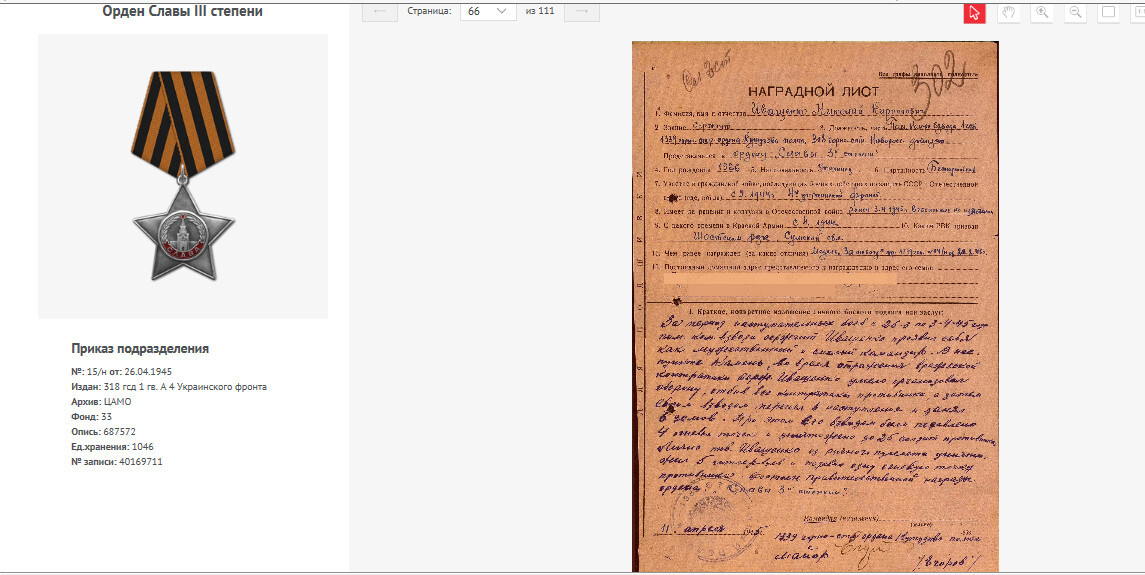 Орден Славы III степени
Страница: 66 из 111
СЛАВА
Приказ подразделения
№: 15/н от: 26.04.1945
Издан: 318 гсд 1 гв. А 4 Украинского фронта
Архив: ЦАМО
Фонд: 33
Опись: 687572
Ед.хранения: 1046
№ записи: 40169711
302
НАГРАДНОЙ ЛИСТ
1. Фамилия, имя и отчество Иващенко Николай
2. Звание Сержант 3. Должность, часть Пом. Ком. взвода
1339 горно-стр. ордена Кутузова полка, 318 горно-стр.
Представляется к ордену Славы 3й степени
4. Год рождения 1926 5. Национальность 6. Партийность
7. Участие в гражданской войне, последующих боевых действиях по защите СССР и Отечественной
войне с 9.1944г. 4й Украинский фронт
8. Имеет ли ранения и контузии в Отечественной войне ранен 3.4.1945г.
9. С какого времени в Красной Армии 10. Каким РВК призван
Шосткин. Сумской обл.
11. Чем ранее награжден (за какие отличия) Медаль "За отвагу"
12. Постоянный домашний адрес представляемого к награждению и адрес его семьи:
I. Краткое, конкретное изложение личного боевого подвига или заслуг:
За период наступательных боев с 25-3 по 3-4-45
пом. ком. взвода сержант Иващенко проявил себя
как мужественный и смелый командир. В нас.
пункте во время отражения вражеской
контратаки серж. Иващенко умело организовал
оборону, отбив все контратаки противника, а затем
своим взводом перешел в наступление и занял
6 домов. При этом его взводом было подавлено
4 огневых точки и уничтожено до 25 солдат противника.
Лично тов. Иващенко из ручного пулемета уничтожил
5 и подавил одну огневую точку
противника. Достоин правительственной награды
ордена "Славы 3й степени".
Командир
11 апреля 1945г. 1339 горно-стр. ордена Кутузова полка
Майор /Егоров/